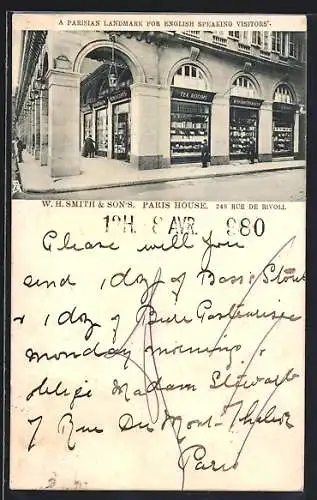 A PARISIAN LANDMARK FOR ENGLISH SPEAKING VISITORS.
TEA ROOMS
W. H. SMITH & SON'S. PARIS HOUSE. 248 RUE DE RIVOLI.
12H 8 AVR. 980
Please will you
send 1 doz of Bass Stout
& 1 doz of Bière
monday morning.
oblige Madam Stewart
7 Rue Du Mont-Thabor
Paris